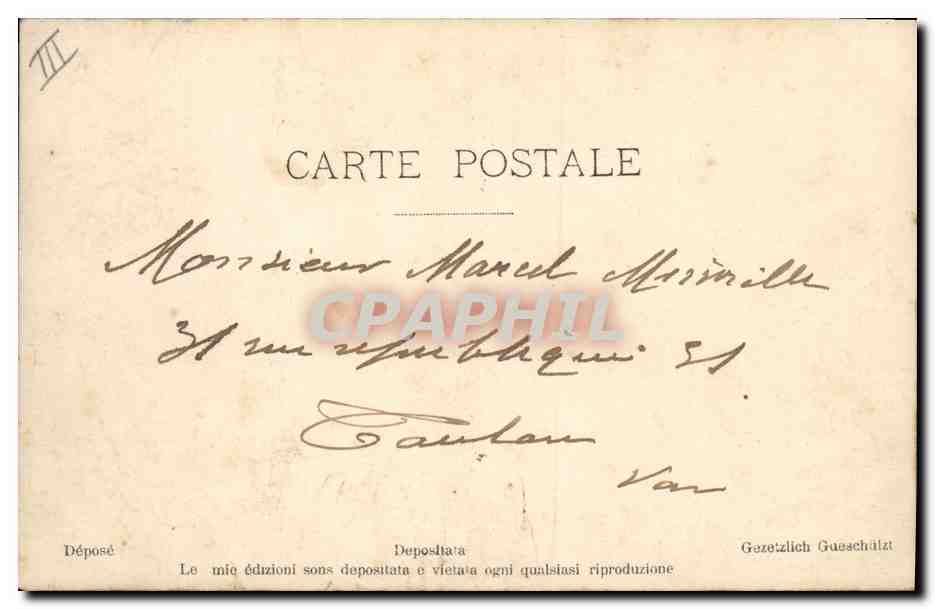 III
CARTE POSTALE
Monsieur Marcel
CPAPHIL
31 rue republique 31
Toulon
Var
Déposé Depositata Gezetzlich Gueschülzt
Le mie édizioni sons depositata e vietata ogni qualsiasi riproduzione